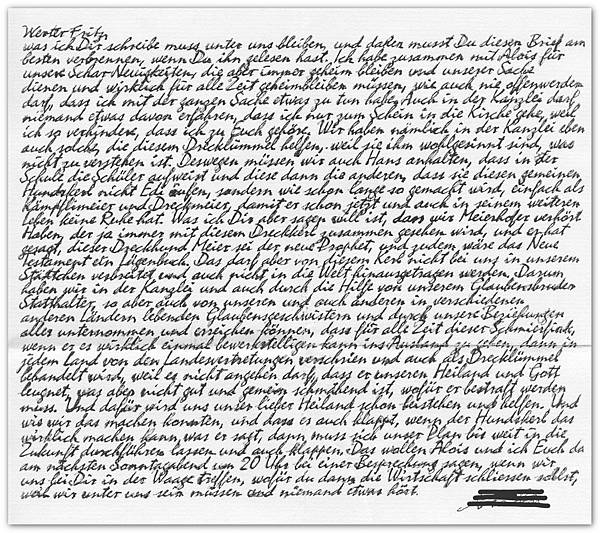 Werter Fritz,
was ich Dir schreibe muss unter uns bleiben, und daher musst Du diesen Brief am
besten verbrennen, wenn Du ihn gelesen hast. Ich habe zusammen mit Alois für
unsere Schar Neuigkeiten, die aber immer geheim bleiben und unserer Sache
dienen und wirklich für alle Zeit geheimbleiben müssen, wie auch nie offenwerden
darf, dass ich mit der ganzen Sache etwas zu tun habe. Auch in der Kanzlei darf
niemand etwas davon erfahren, dass ich nur zum Schein in die Kirche gehe, weil
ich so verhindere, dass ich zu Euch gehöre. Wir haben nämlich in der Kanzlei eben
auch solche, die diesem Drecklümmel helfen, weil sie ihm wohlgesinnt sind, was
nicht zu verstehen ist. Deswegen müssen wir auch Hans anhalten, dass in der
Schule die Schüler aufweist und diese dann die anderen, dass sie diesen gemeinen
Hundskerl nicht Edi rufen, sondern wie schon lange so gemacht wird, einfach als
Kämpflimeier und Dreckmeier, damit er schon jetzt und auch in seinem weiteren
Leben keine Ruhe hat. Was ich Dir aber sagen will ist, dass wir Meierhofer verhört
haben, der ja immer mit diesem Dreckkerl zusammen gesehen wird, und er hat
gesagt, dieser Dreckhund Meier sei der neue Prophet, und zudem wäre das Neue
Testament ein Lügenbuch. Das darf aber von diesem Kerl nicht bei uns in unserem
Städtchen verbreitet und auch nicht in die Welt hinausgetragen werden. Darum
haben wir in der Kanzlei und auch durch die Hilfe von unserem Glaubensbruder
Statthalter, so aber auch von unseren und auch anderen in verschiedenen
anderen Ländern lebenden Glaubensgeschwistern und durch unsere Beziehungen
alles unternommen und erreichen können, dass für alle Zeit dieser Schmierfink,
wenn er es wirklich einmal bewerkstelligen kann ins Ausland zu gehen, dann in
jedem Land von den Landesvertretungen verschrien und auch als Drecklümmel
behandelt wird, weil es nicht angehen darf, dass er unseren Heiland und Gott
leugnet, was aber nicht gut und gemein schmähend ist, wofür er bestraft werden
muss. Und dafür wird uns unser lieber Heiland schon beistehen und helfen. Und
wie wir das machen konnten, und dass es auch klappt, wenn der Hundskerl das
wirklich machen kann, was er sagt, dann muss sich unser Plan bis weit in die
Zukunft durchführen lassen und auch klappen. Das wollen Alois und ich Euch da
am nächsten Sonntagabend um 20 Uhr bei einer Besprechung sagen, wenn wir
uns bei Dir in der Waage treffen, wofür du dann die Wirtschaft schliessen sollst,
weil wir unter uns sein müssen und niemand etwas hört.